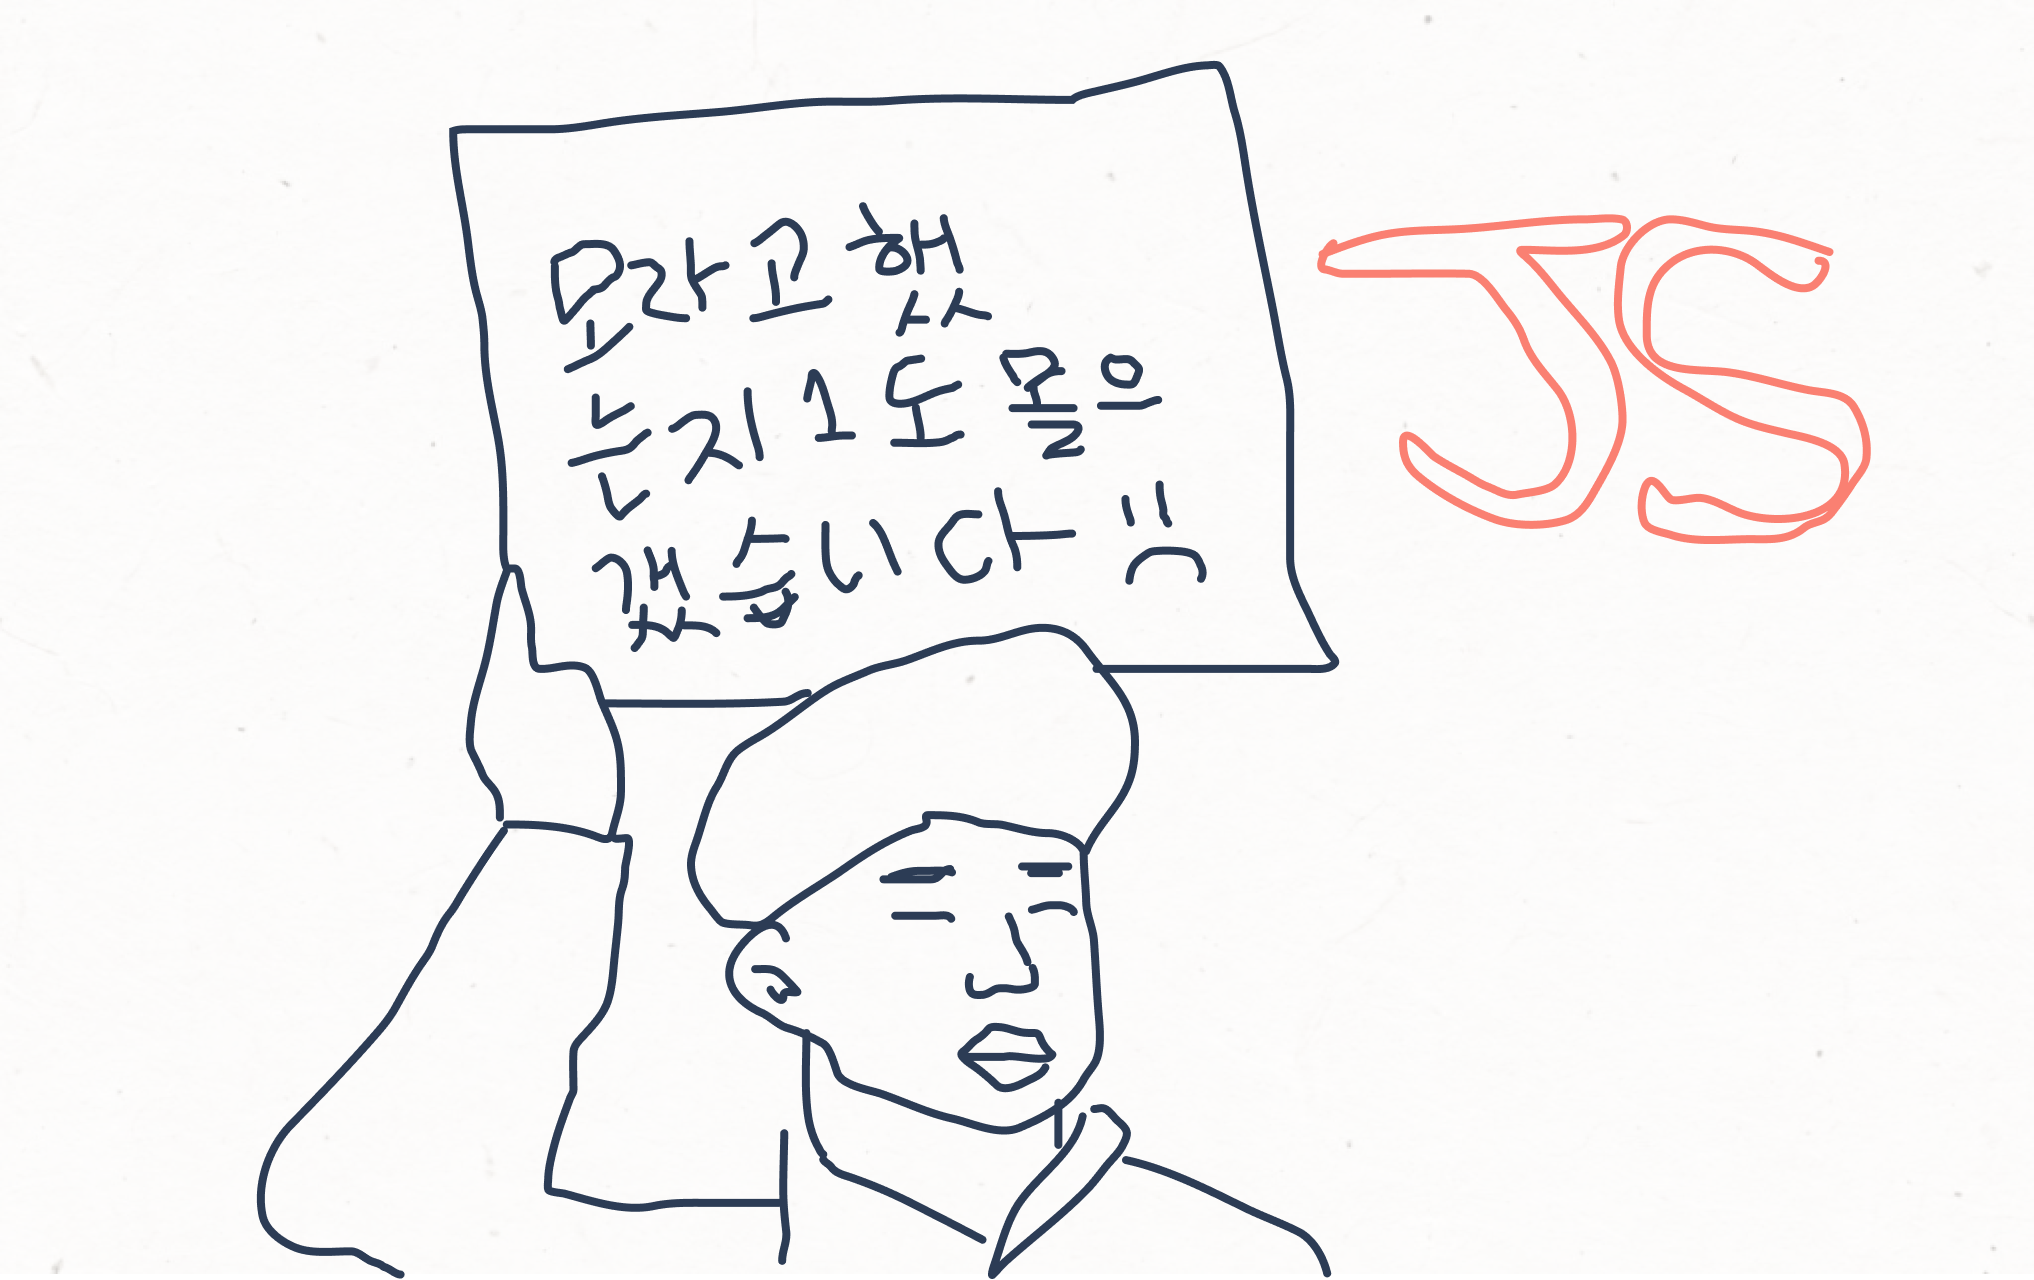 뭐라고 했
는지 1도 몰으
겠습니다 :(
JS